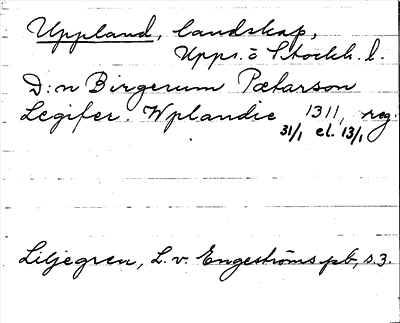 Uppland, landskap,
Upps. o Stockh. l.
D:n Birgerum Pætarson
Legifer. Wplandie 1311, reg.
31/1 el. 13/1
Liljegren, L. v. Engeströms pb, s. 3.